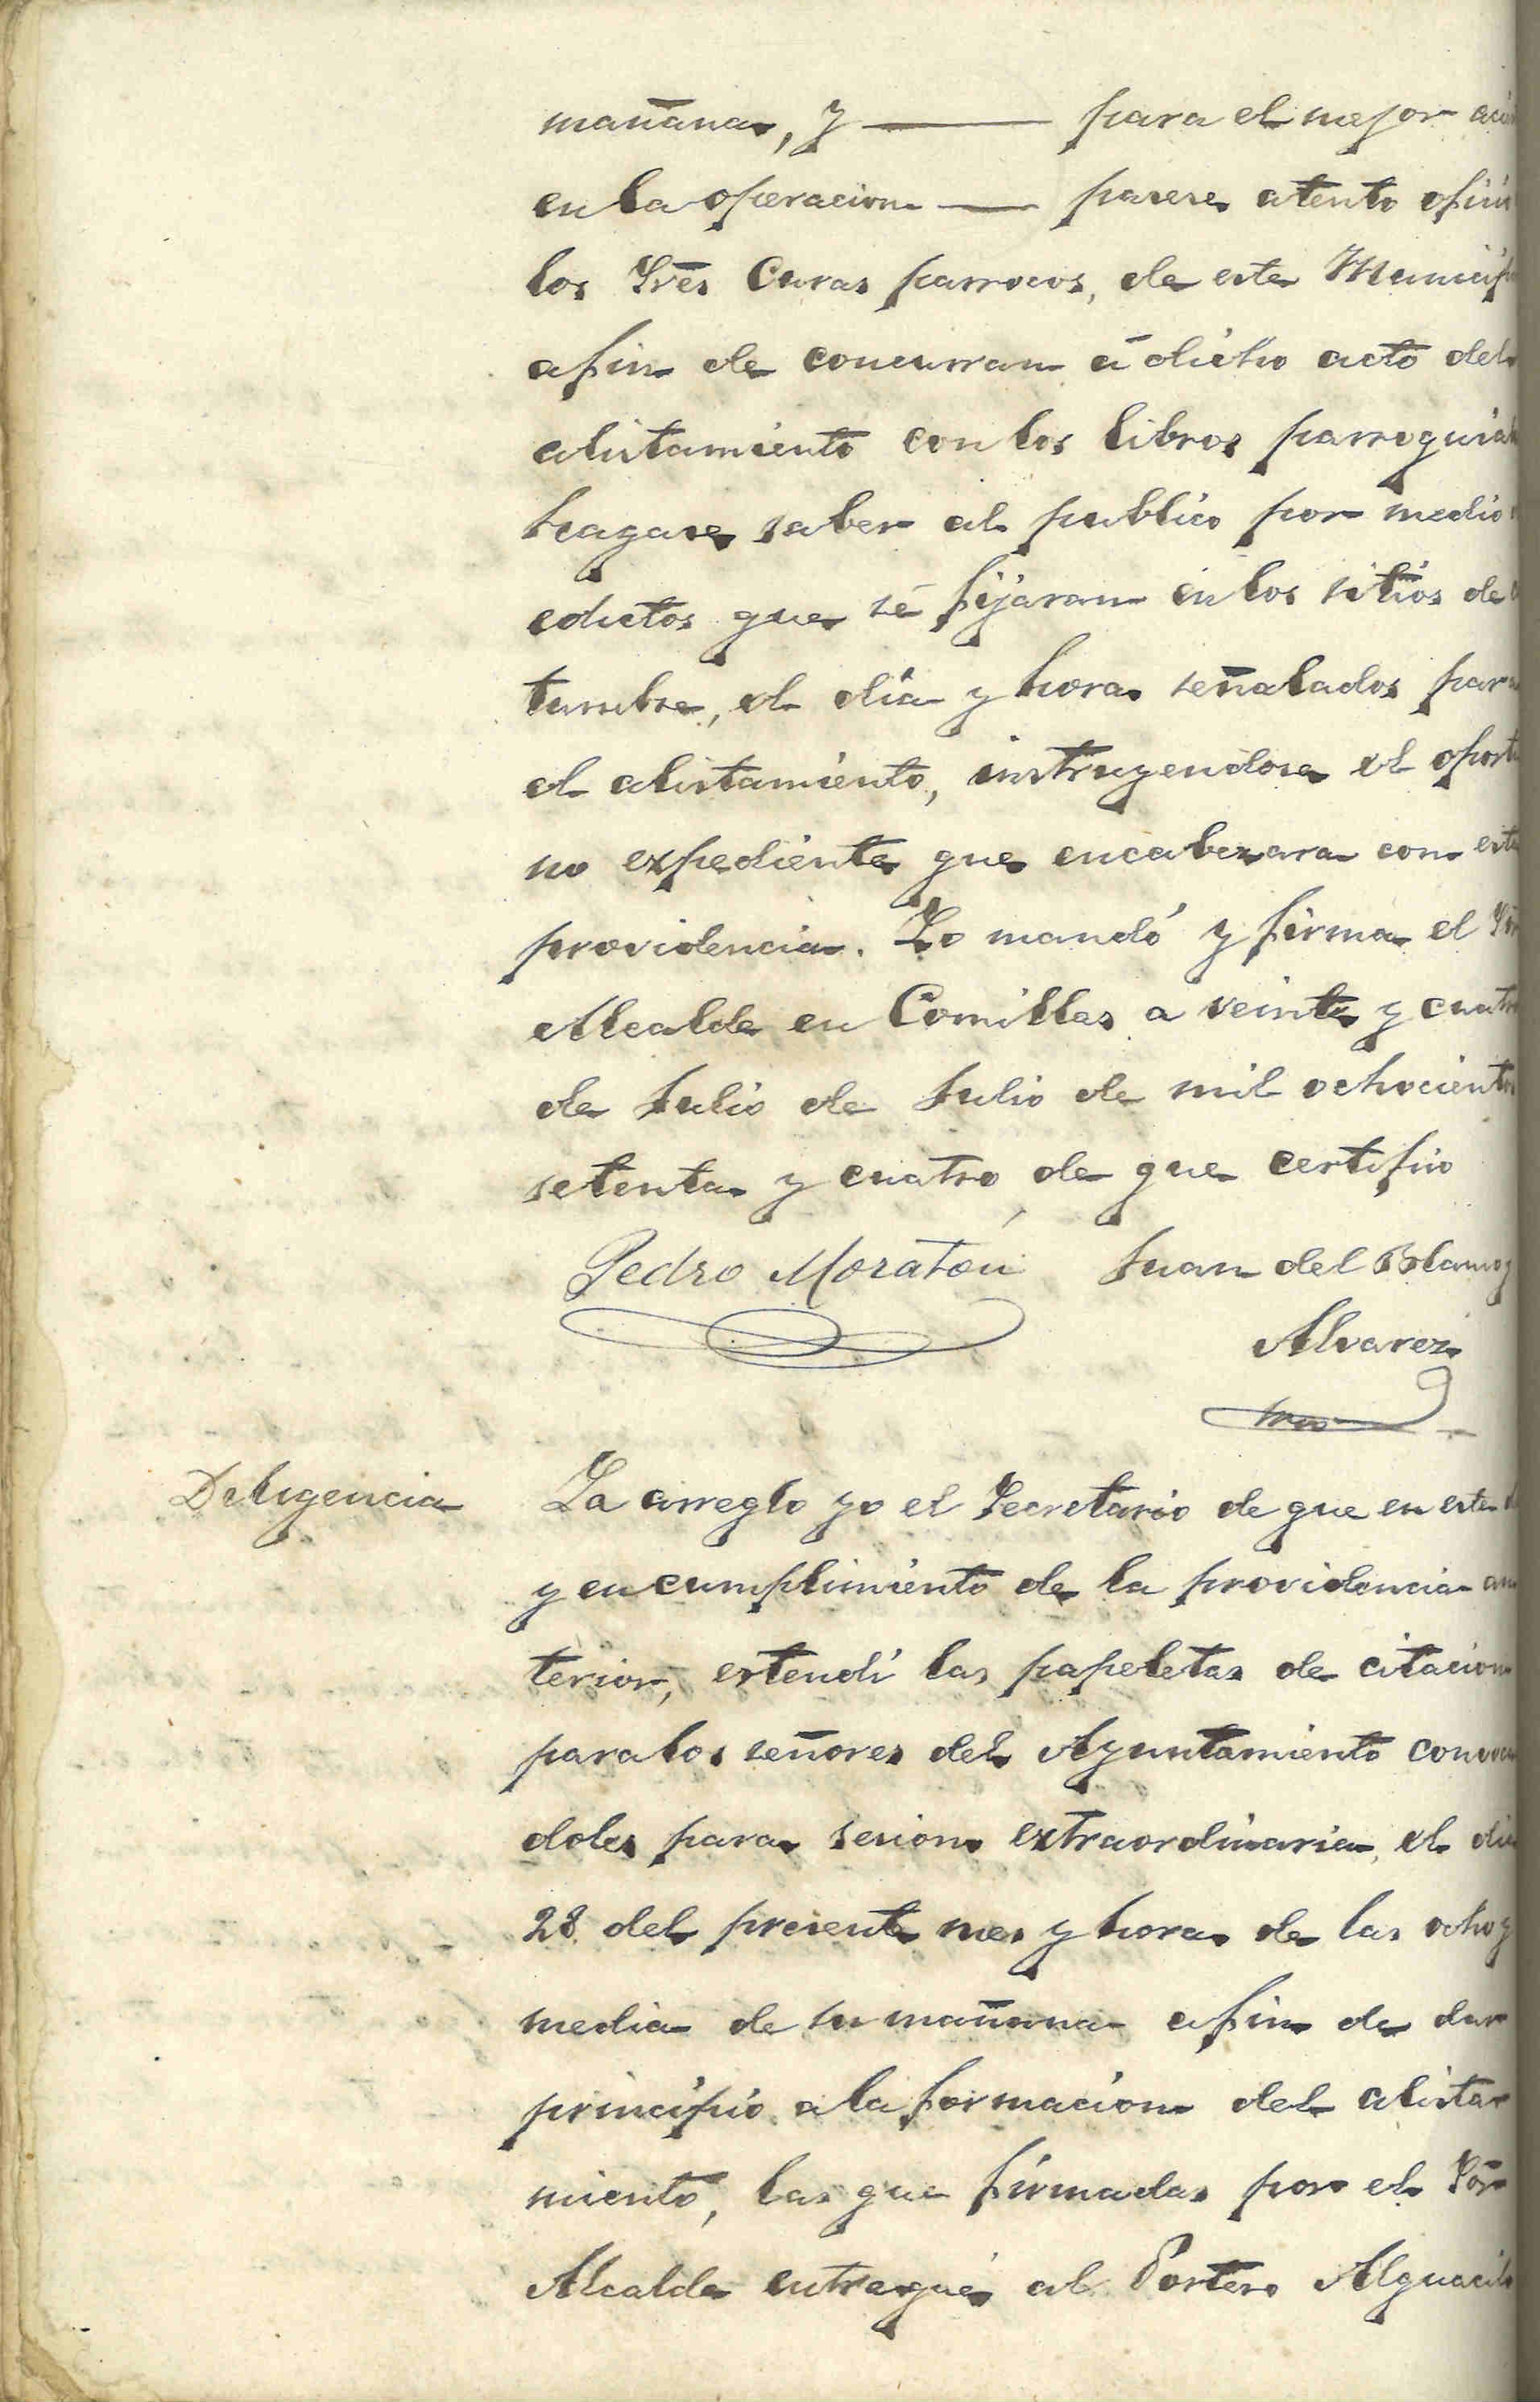 mañana, y ——— para el mejor
en la operacion — pasese atento ofici
los Sres Curas parrocos, de este Municip
afin de concurran á dicho acto del
alistamiento con los libros parroquial
hagase saber al publico por medio
edictos que se fijaran en los sitios de
tumbre, el dia y hora señalados para
el alistamiento, instruyendose el oportu
no expediente que encabezara con esta
providencia. Lo mandó y firma el Sor
Alcalde en Comillas a veinte y cuatro
de Julio de Julio de mil ochocientos
setenta y cuatro de que certifico
Pedro Moratón Juan del Blanco y
Alvarez
srio
Diligencia
La arreglo yo el Secretario de que en este d
y en cumplimiento de la providencia an
terior, estendí las papeletas de citacion
para los señores del Ayuntamiento convocan
doles para sesion extraordinaria, el dia
28 del presente mes y hora de las ocho y
media de su mañana afin de dar
principio a la formacion del alista
miento, las que firmadas por el Sor
Alcalde entregué al Portero Alguacil